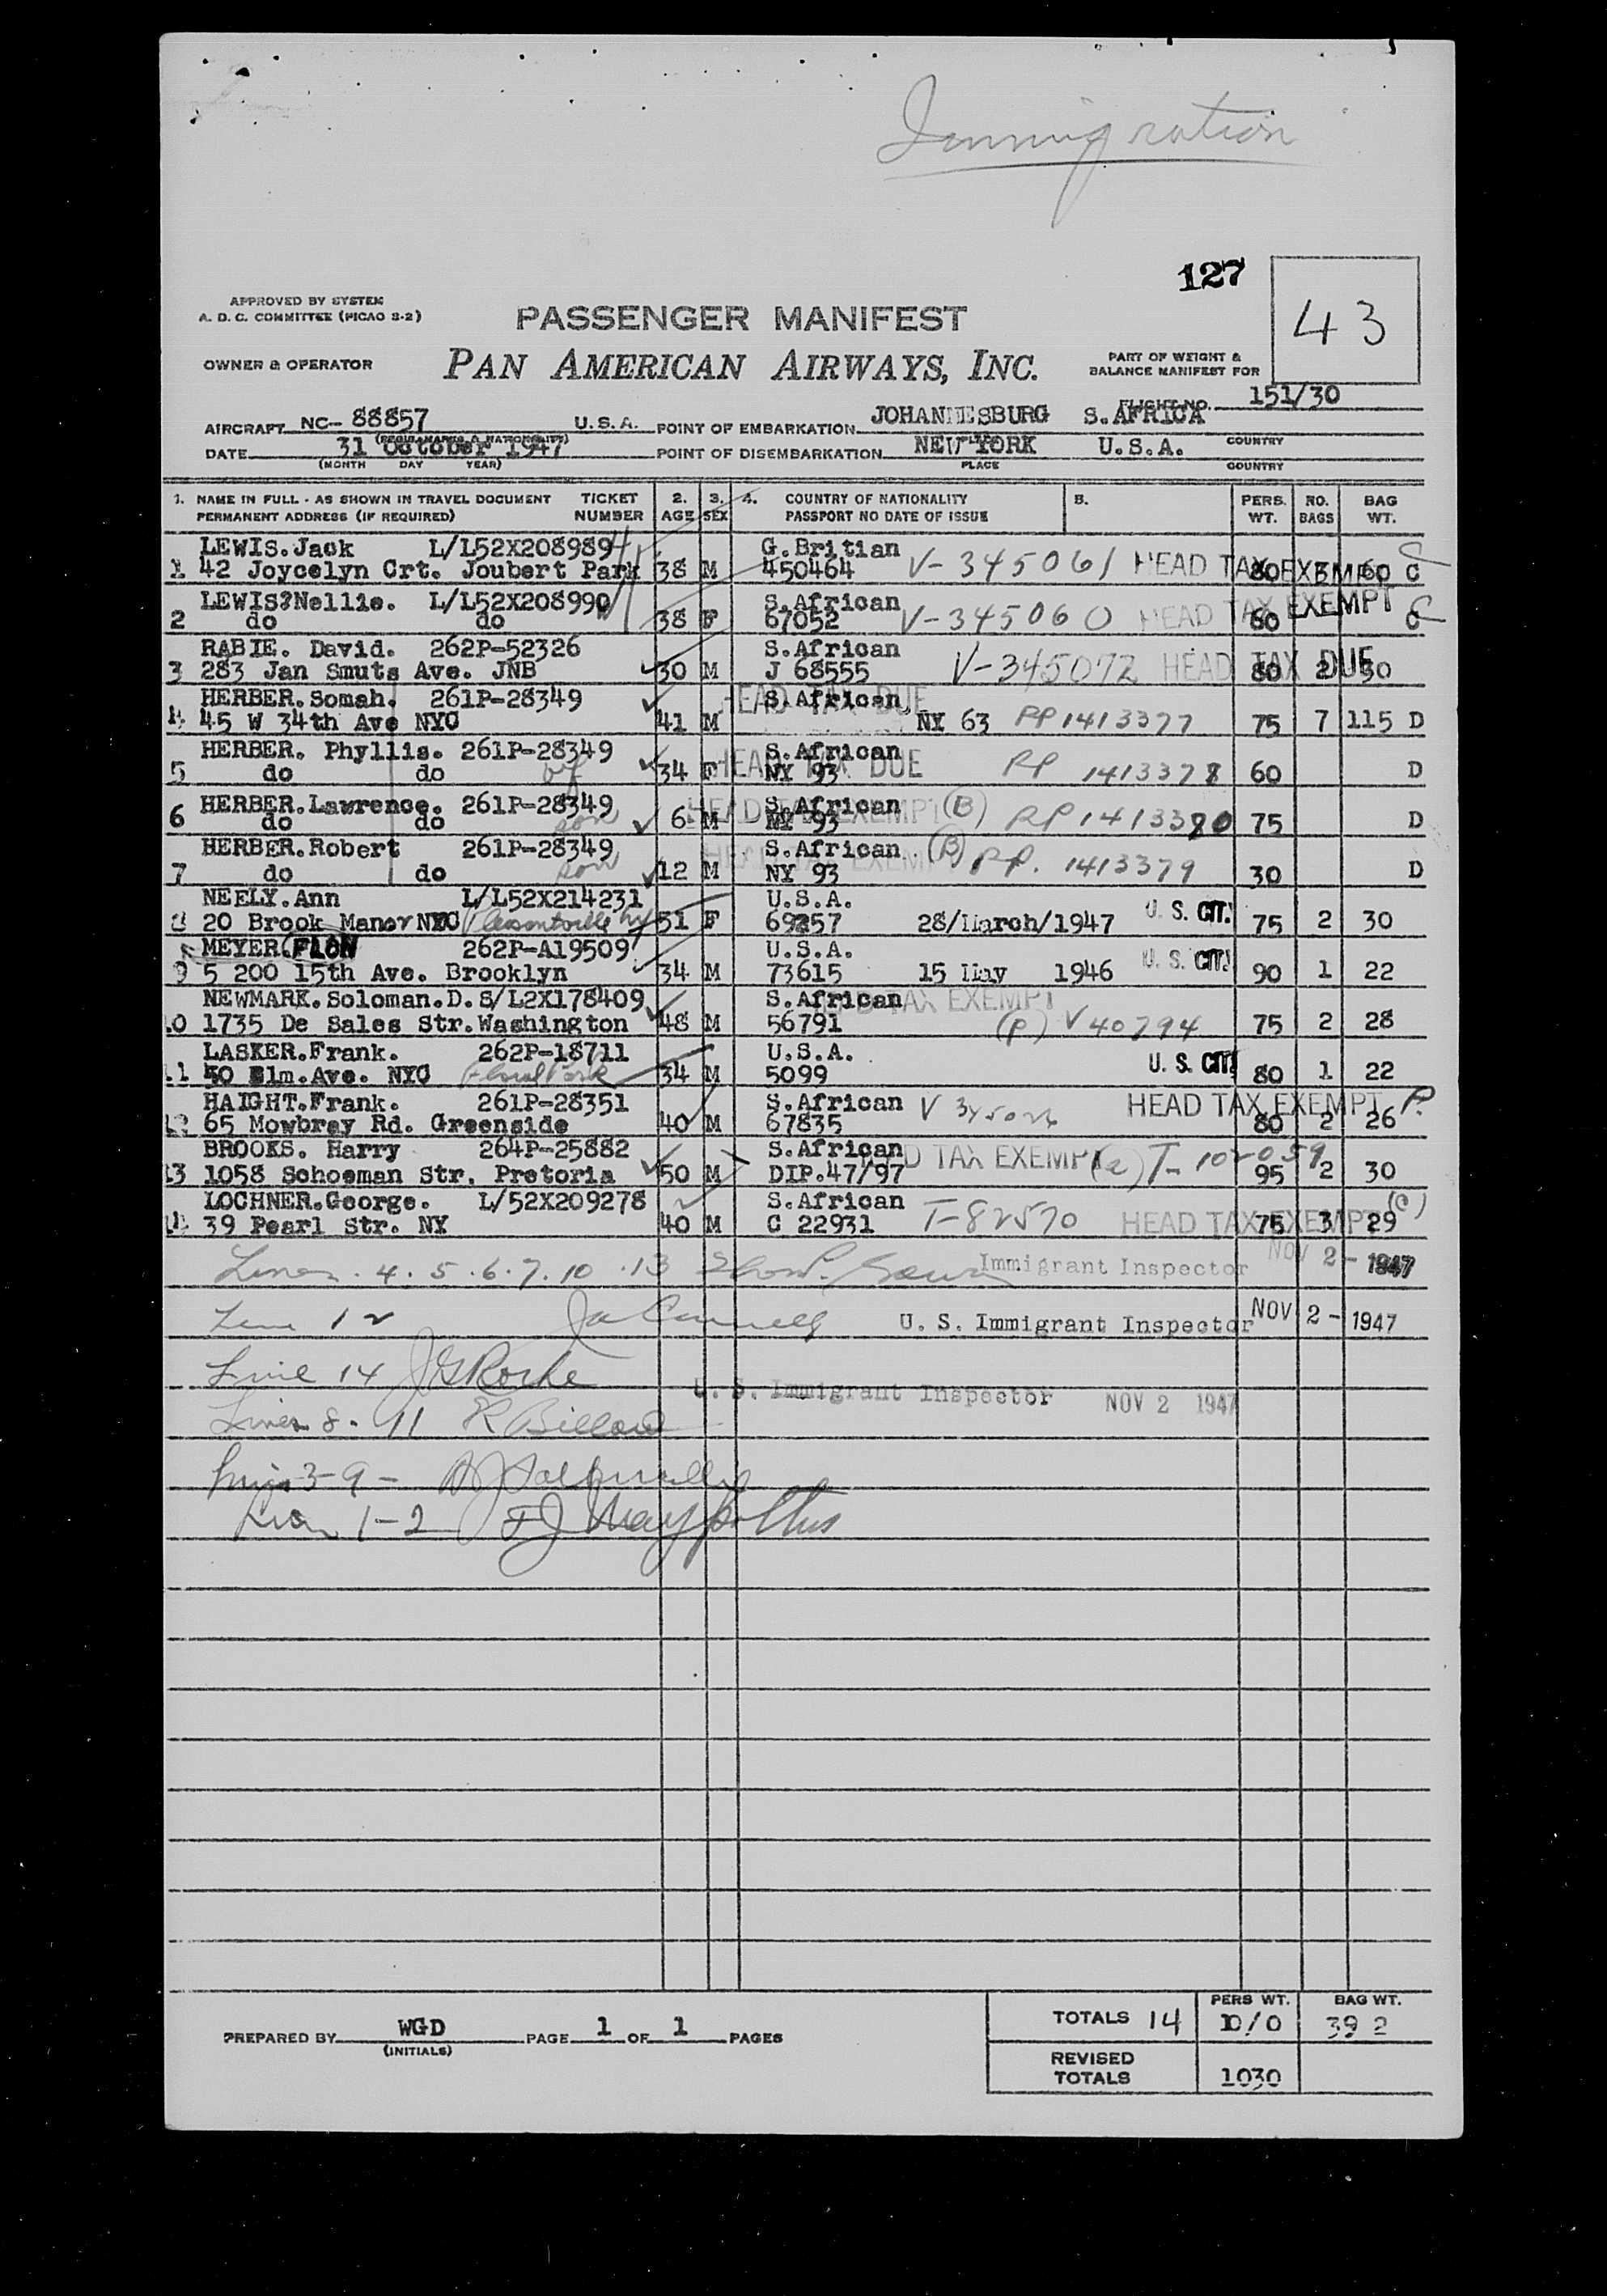 Immigration
127
43
APPROVED BY SYSTEM
A. D. C. COMMITTEE (PICAO S-2)
PASSENGER MANIFEST
OWNER & OPERATOR PAN AMERICAN AIRWAYS, INC.
PART OF WEIGHT &
BALANCE MANIFEST FOR
FLIGHT NO. 151/30
AIRCRAFT NC- 88857 U.S.A. POINT OF EMBARKATION JOHANNESBURG S.AFRICA
(REGIS. MARKS & NATIONALITY) COUNTRY
DATE 31 October 1947 POINT OF DISEMBARKATION NEW YORK U.S.A.
(MONTH DAY YEAR) PLACE COUNTRY
1. NAME IN FULL - AS SHOWN IN TRAVEL DOCUMENT TICKET 2. 3. 4. COUNTRY OF NATIONALITY 5. PERS. NO. BAG
PERMANENT ADDRESS (IF REQUIRED) NUMBER AGE SEX PASSPORT NO DATE OF ISSUE WT. BAGS WT.
LEWIS.Jack L/L52X208989 G.Britian V-345061 HEAD TAX EXEMPT C
1 42 Joycelyn Crt. Joubert Park 38 M 450464 80 3 60 C
LEWIS?Nellie. L/L52X208990 S.African V-345060 HEAD TAX EXEMPT C
2 do do 38 F 67052 60 C
RABIE. David. 262P-52326 S.African V-345072 HEAD TAX DUE
3 283 Jan Smuts Ave. JNB 30 M J 68555 80 2 30
HERBER.Somah. 261P-28349 HEAD TAX DUE S.African
4 45 W 34th Ave NYC 41 M NY 63 RP 1413377 75 7 115 D
HERBER. Phyllis. 261P-28349 S.African HEAD TAX DUE RP 1413378
5 do do wf 34 F NY 93 60 D
HERBER.Lawrence. 261P-28349 S.African HEAD TAX EXEMPT (B) RP 1413380
6 do do son 6 M NY 93 75 D
HERBER.Robert 261P-28349 S.African HEAD TAX EXEMPT (B) RP. 1413379
7 do do son 12 M NY 93 30 D
NEELY.Ann L/L52X214231 U.S.A. U. S. CIT.
8 20 Brook Manor NYC Pleasantville NY 51 F 69257 28/March/1947 75 2 30
MEYER FLON 262P-A19509 U.S.A. U. S. CIT.
9 5 200 15th Ave. Brooklyn 34 M 73615 15 May 1946 90 1 22
NEWMARK.Soloman.D. S/L2X178409 S.African HEAD TAX EXEMPT
10 1735 De Sales Str.Washington 48 M 56791 (P) V 40794 75 2 28
LASKER.Frank. 262P-18711 U.S.A. U. S. CIT.
11 50 Elm.Ave. NYC Floral Park 34 M 5099 80 1 22
HAIGHT.Frank. 261P-28351 S.African V HEAD TAX EXEMPT P.
12 65 Mowbray Rd. Greenside 40 M 67835 80 2 26
BROOKS. Harry 264P-25882 S.African HEAD TAX EXEMPT (a) T-102059
13 1058 Schoeman Str. Pretoria 50 M DIP.47/97 95 2 30
LOCHNER.George. L/52X209278 S.African T-82570 HEAD TAX EXEMPT (C)
14 39 Pearl Str. NY 40 M C 22931 75 3 29
Lines . 4 . 5 . 6 . 7 . 10 . 13 Immigrant Inspector NOV 2 - 1947
Line 12 U. S. Immigrant Inspector NOV 2 - 1947
Line 14 J G Roche
U. S. Immigrant Inspector NOV 2 1947
Lines 8. 11
Lines 3-9-
Lines 1-2
PREPARED BY WGD PAGE 1 OF 1 PAGES
(INITIALS)
PERS WT. BAG WT.
TOTALS 14 10/0 392
REVISED
TOTALS 1030